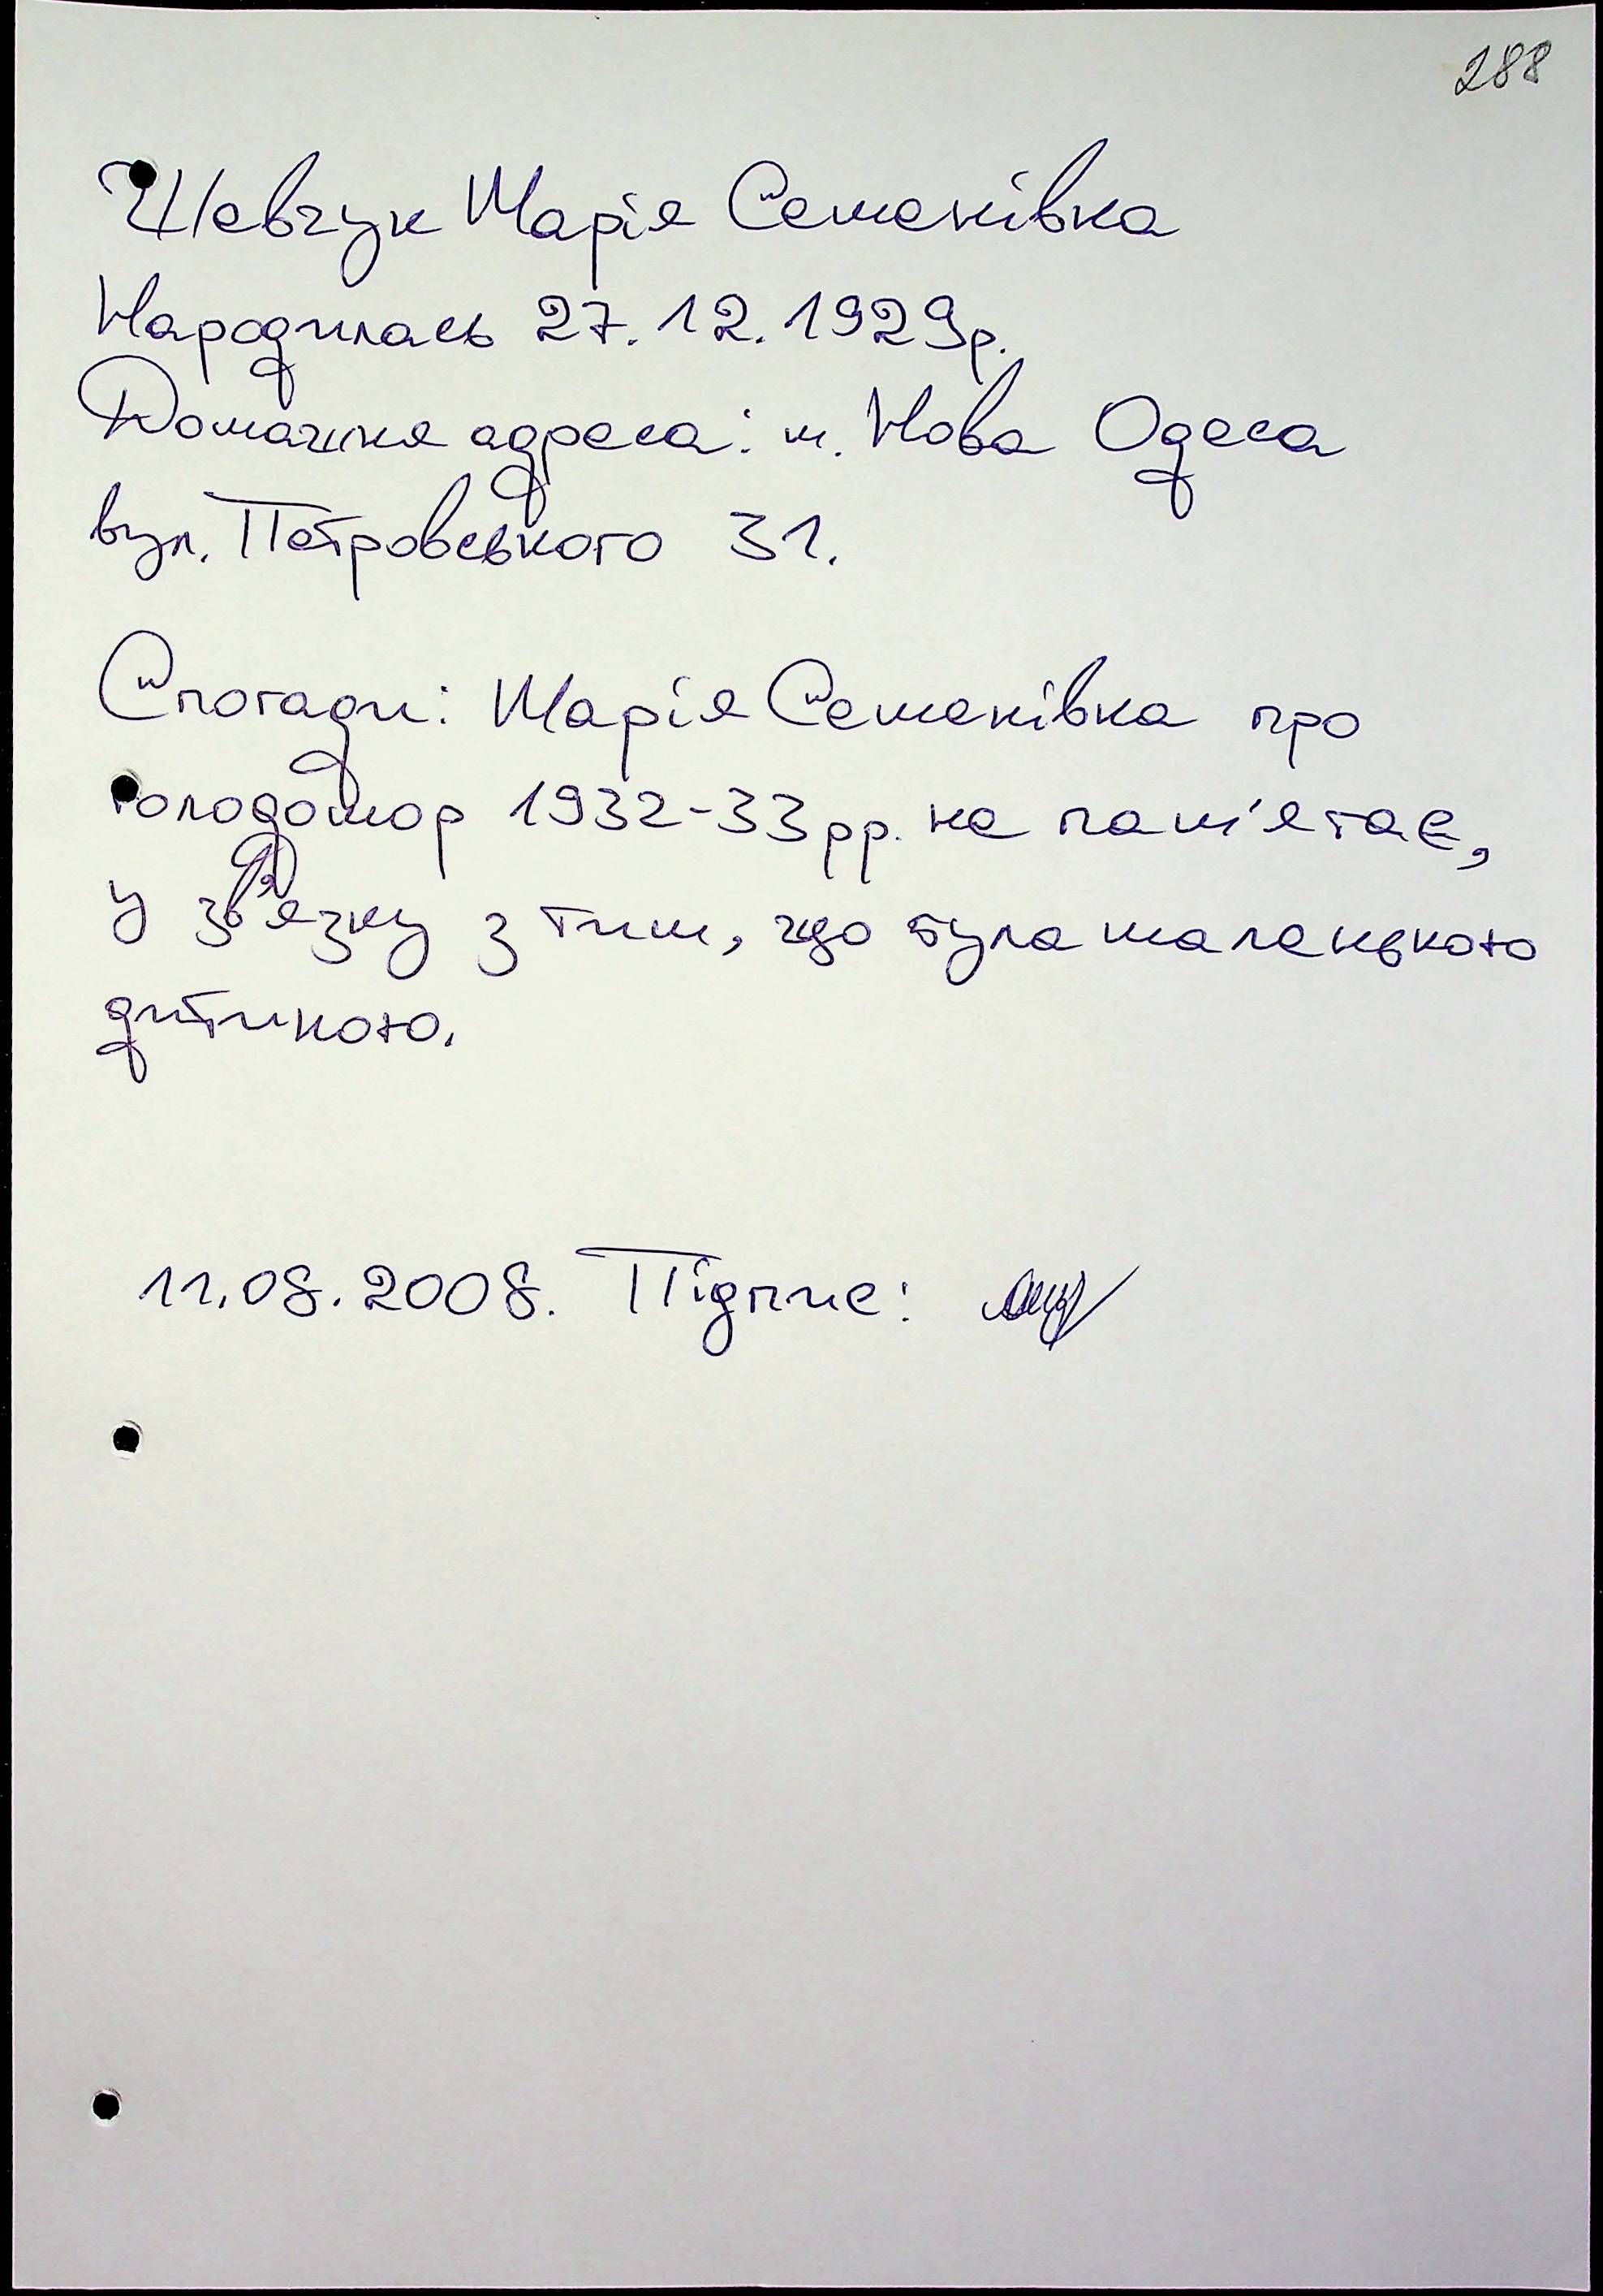 288
Шевчук Марія Семенівна
Народилась 27.12.1929р.
Домашня адреса: м. Нова Одеса
вул. Петровського 31.
Спогади: Марія Семенівна про
голодомор 1932-33рр. не пам'ятає,
у зв'язку з тим, що була маленькою
дитиною.
11.08.2008. Підпис: